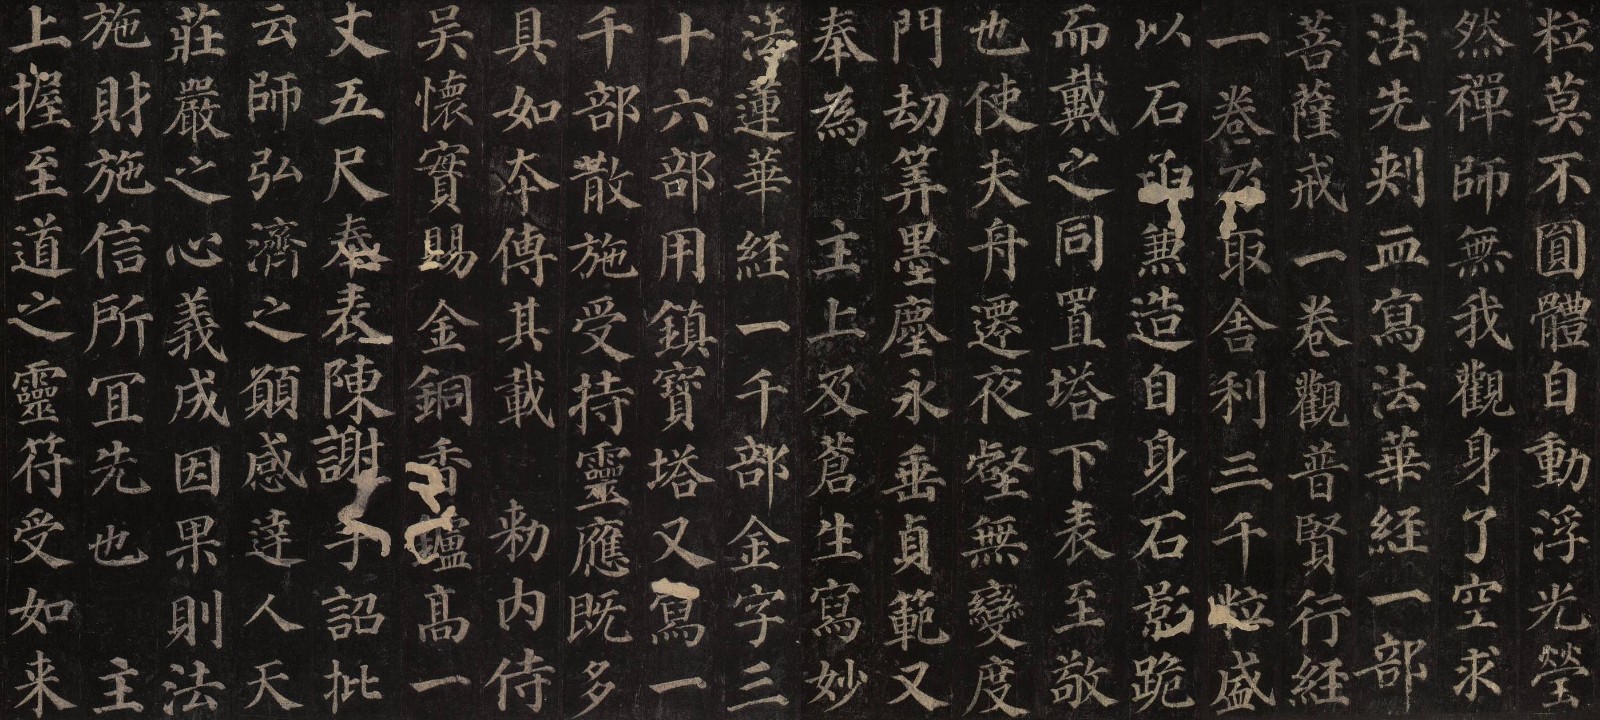 粒莫不圓體自動浮光瑩
然禪師無我觀身了空求
法先刺血寫法華経一部
菩薩戒一卷觀普賢行経
一卷乃取舍利三千粒盛
以石函兼造自身石影跪
而戴之同置塔下表至敬
也使夫舟遷夜壑無變度
門劫筭墨塵永垂貞範又
奉為 主上及蒼生寫妙
法蓮華経一千部金字三
十六部用鎮寶塔又寫一
千部散施受持靈應既多
具如夲傳其載 勑内侍
吴懷實賜金銅香鑪髙一
丈五尺奉表陳謝手詔批
云師弘濟之願感達人天
莊嚴之心義成因果則法
施財施信所冝先也 主
上握至道之靈符受如来